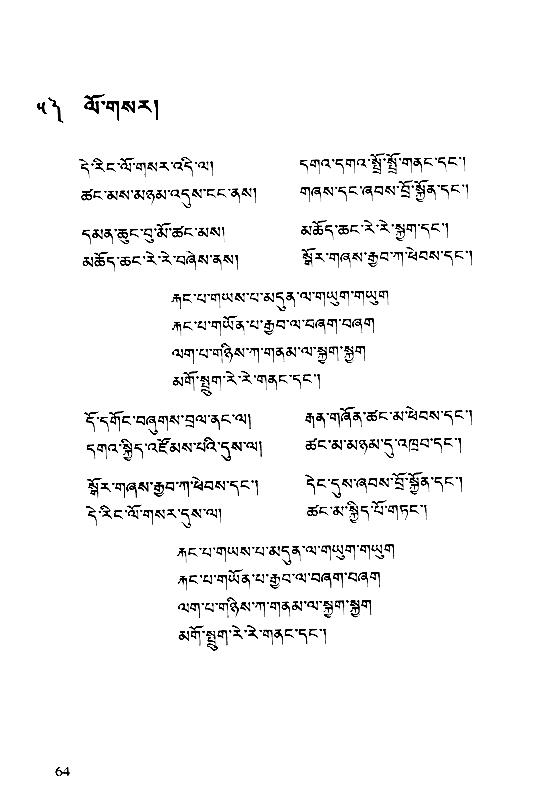 ༥༽ ལོ་གསར།
དེ་རིང་ལོ་གསར་འདི་ལ། དགའ་དགའ་སྤྲོ་སྤྲོ་གནང་དང་།
ཚང་མས་མཉམ་འདུས་ངང་ནས། གཞས་དང་ཞབས་བྲོ་སྐྱོན་དང་།
དམན་ཆུང་བུ་མོ་ཚང་མས། མཆོད་ཆང་རེ་རེ་སྐྱག་དང་།
མཆོད་ཆང་རེ་རེ་བཞེས་ནས། སྒོར་གཞས་རྒྱབ་ཀ་ཕེབས་དང་།
རྐང་པ་གཡས་པ་མདུན་ལ་གཡུག་གཡུག
རྐང་པ་གཡོན་པ་རྒྱབ་ལ་བཞག་བཞག
ལག་པ་གཉིས་ཀ་གནམ་ལ་སྐྱག་སྐྱག
མགོ་སྤྲུག་རེ་རེ་གནང་དང་།
དོ་དགོང་བཞུགས་བྲལ་ནང་ལ། རྒན་གཞོན་ཚང་མ་ཕེབས་དང་།
དགའ་སྐྱིད་འཛོམས་པའི་དུས་ལ། ཚང་མ་མཉམ་དུ་འཁྲབ་དང་།
སྒོར་གཞས་རྒྱབ་ཀ་ཕེབས་དང་། དེང་དུས་ཞབས་བྲོ་སྐྱོན་དང་།
དེ་རིང་ལོ་གསར་དུས་ལ། ཚང་མ་སྐྱིད་པོ་གཏང་།
རྐང་པ་གཡས་པ་མདུན་ལ་གཡུག་གཡུག
རྐང་པ་གཡོན་པ་རྒྱབ་ལ་བཞག་བཞག
ལག་པ་གཉིས་ཀ་གནམ་ལ་སྐྱག་སྐྱག
མགོ་སྤྲུག་རེ་རེ་གནང་དང་།
64